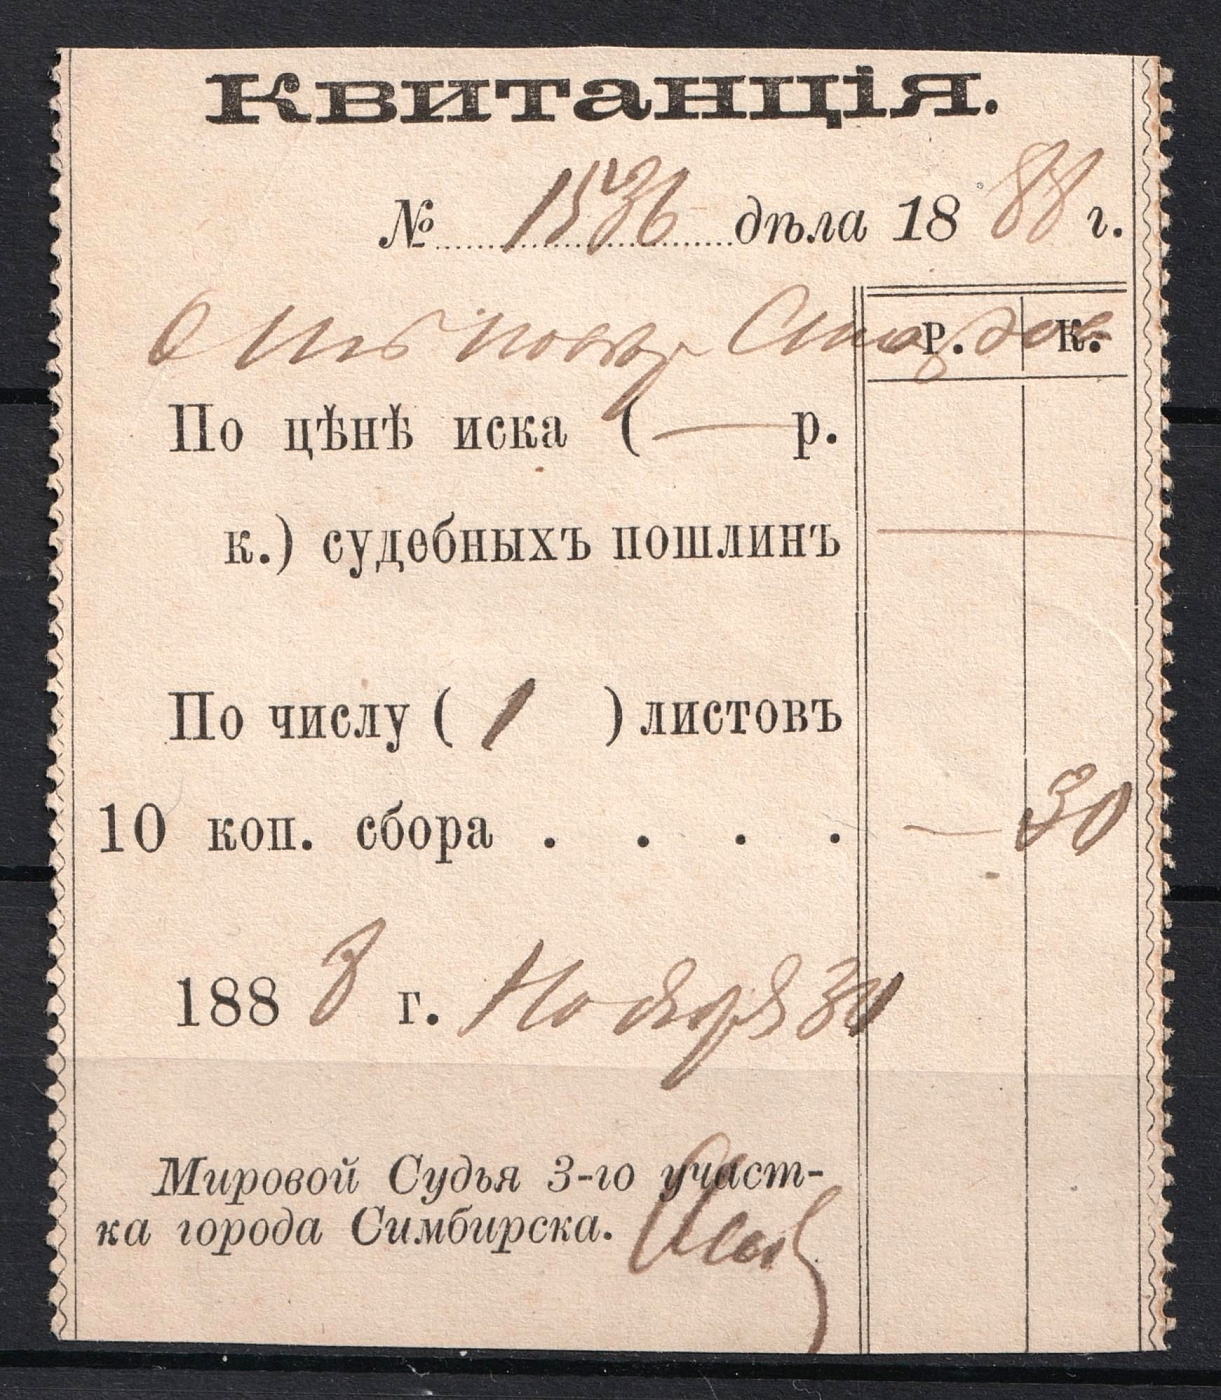 Квитанція.
№ 1536 дѣла 1888 г.
Р. К.
По цѣнѣ иска ( — р.
к.) судебныхъ пошлинъ —
По числу ( 1 ) листовъ
10 коп. сбора . . . . — 30
1888 г. Ноября 30
Мировой Судья 3-го участ-
ка города Симбирска.